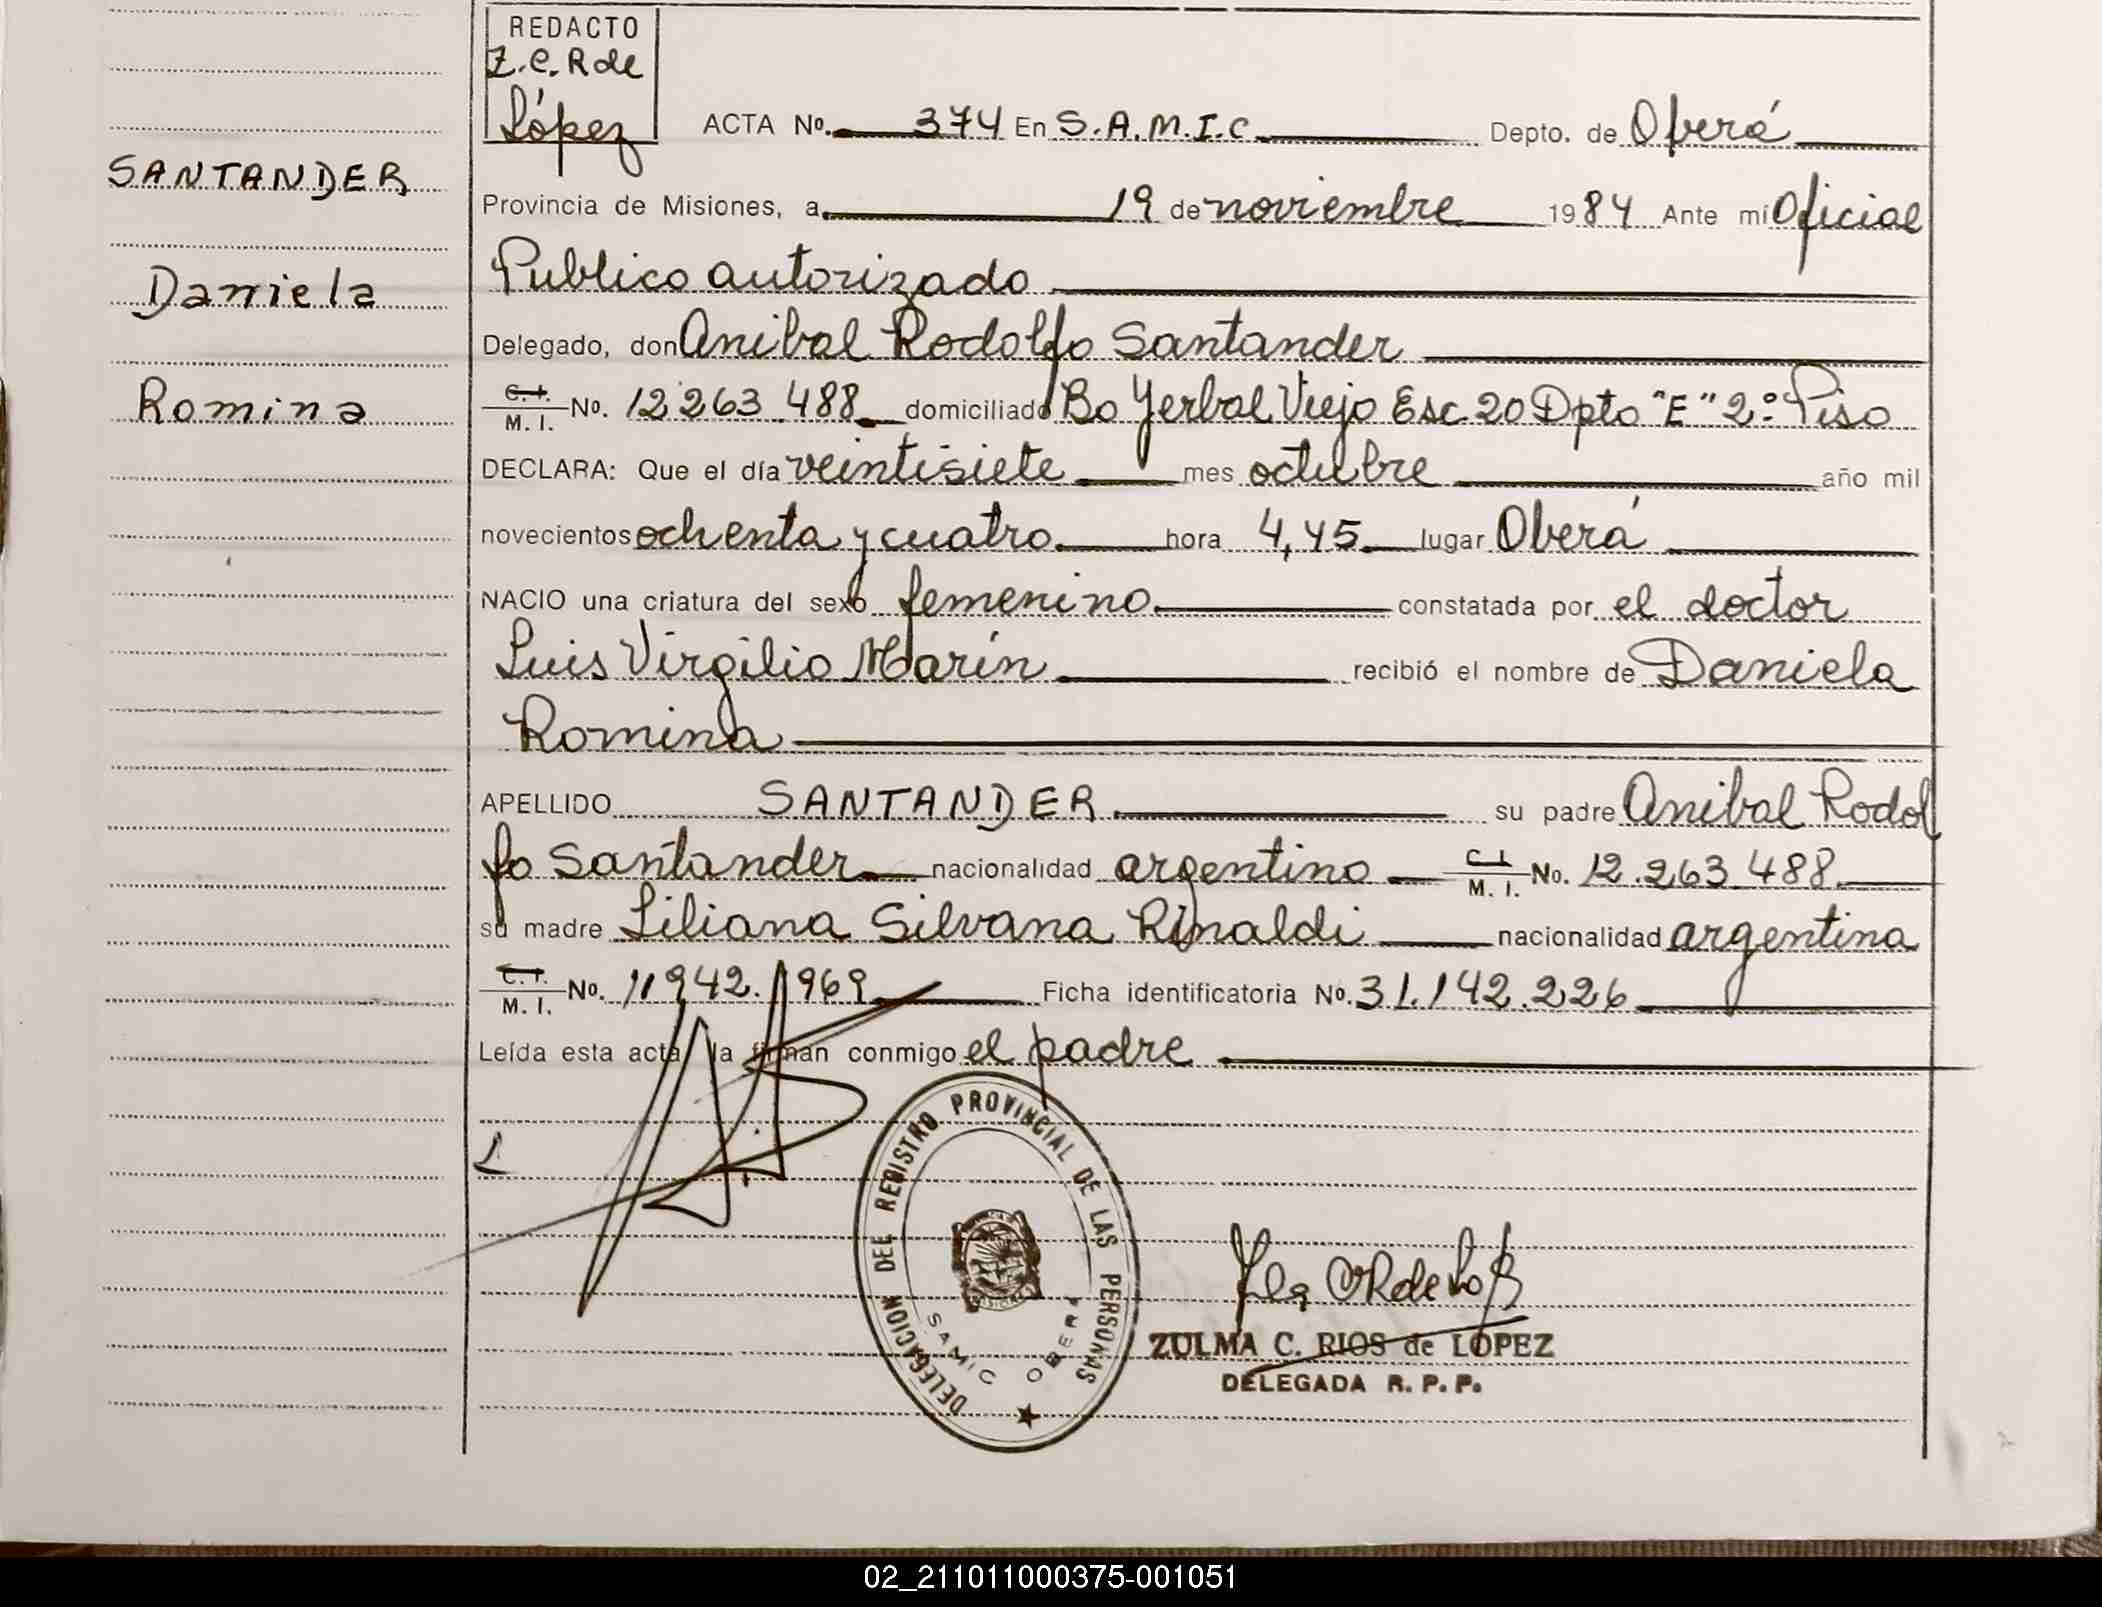 REDACTO
Z.C. R de
López
ACTA No. 374 En S.A.M.I.C. Depto. de Oberá
SANTANDER
Provincia de Misiones, a 19 de noviembre 1984 Ante mí Oficial
Publico autorizado
Daniela
Delegado, don Anibal Rodolfo Santander
Romina
C.I. M.I. No. 12 263 488 domiciliado Bo Yerbal Viejo Esc. 20 Dpto "E" 2º Piso
DECLARA: Que el día veintisiete mes octubre año mil
novecientos ochenta y cuatro hora 4,45 lugar Oberá
NACIO una criatura del sexo femenino constatada por el doctor
Luis Virgilio Marín recibió el nombre de Daniela
Romina
APELLIDO SANTANDER su padre Anibal Rodol
fo Santander nacionalidad argentino C.I. M.I. No. 12.263.488
su madre Liliana Silvana Rinaldi nacionalidad argentina
C.I. M.I. No. 11 942.969 Ficha identificatoria No. 31.142.226
Leída esta acta la firman conmigo el padre
DELEGACION DEL REGISTRO PROVINCIAL DE LAS PERSONAS
MISIONES
SAMIC OBERA
ZULMA C. RIOS de LOPEZ
DELEGADA R. P. P.
02_211011000375-001051